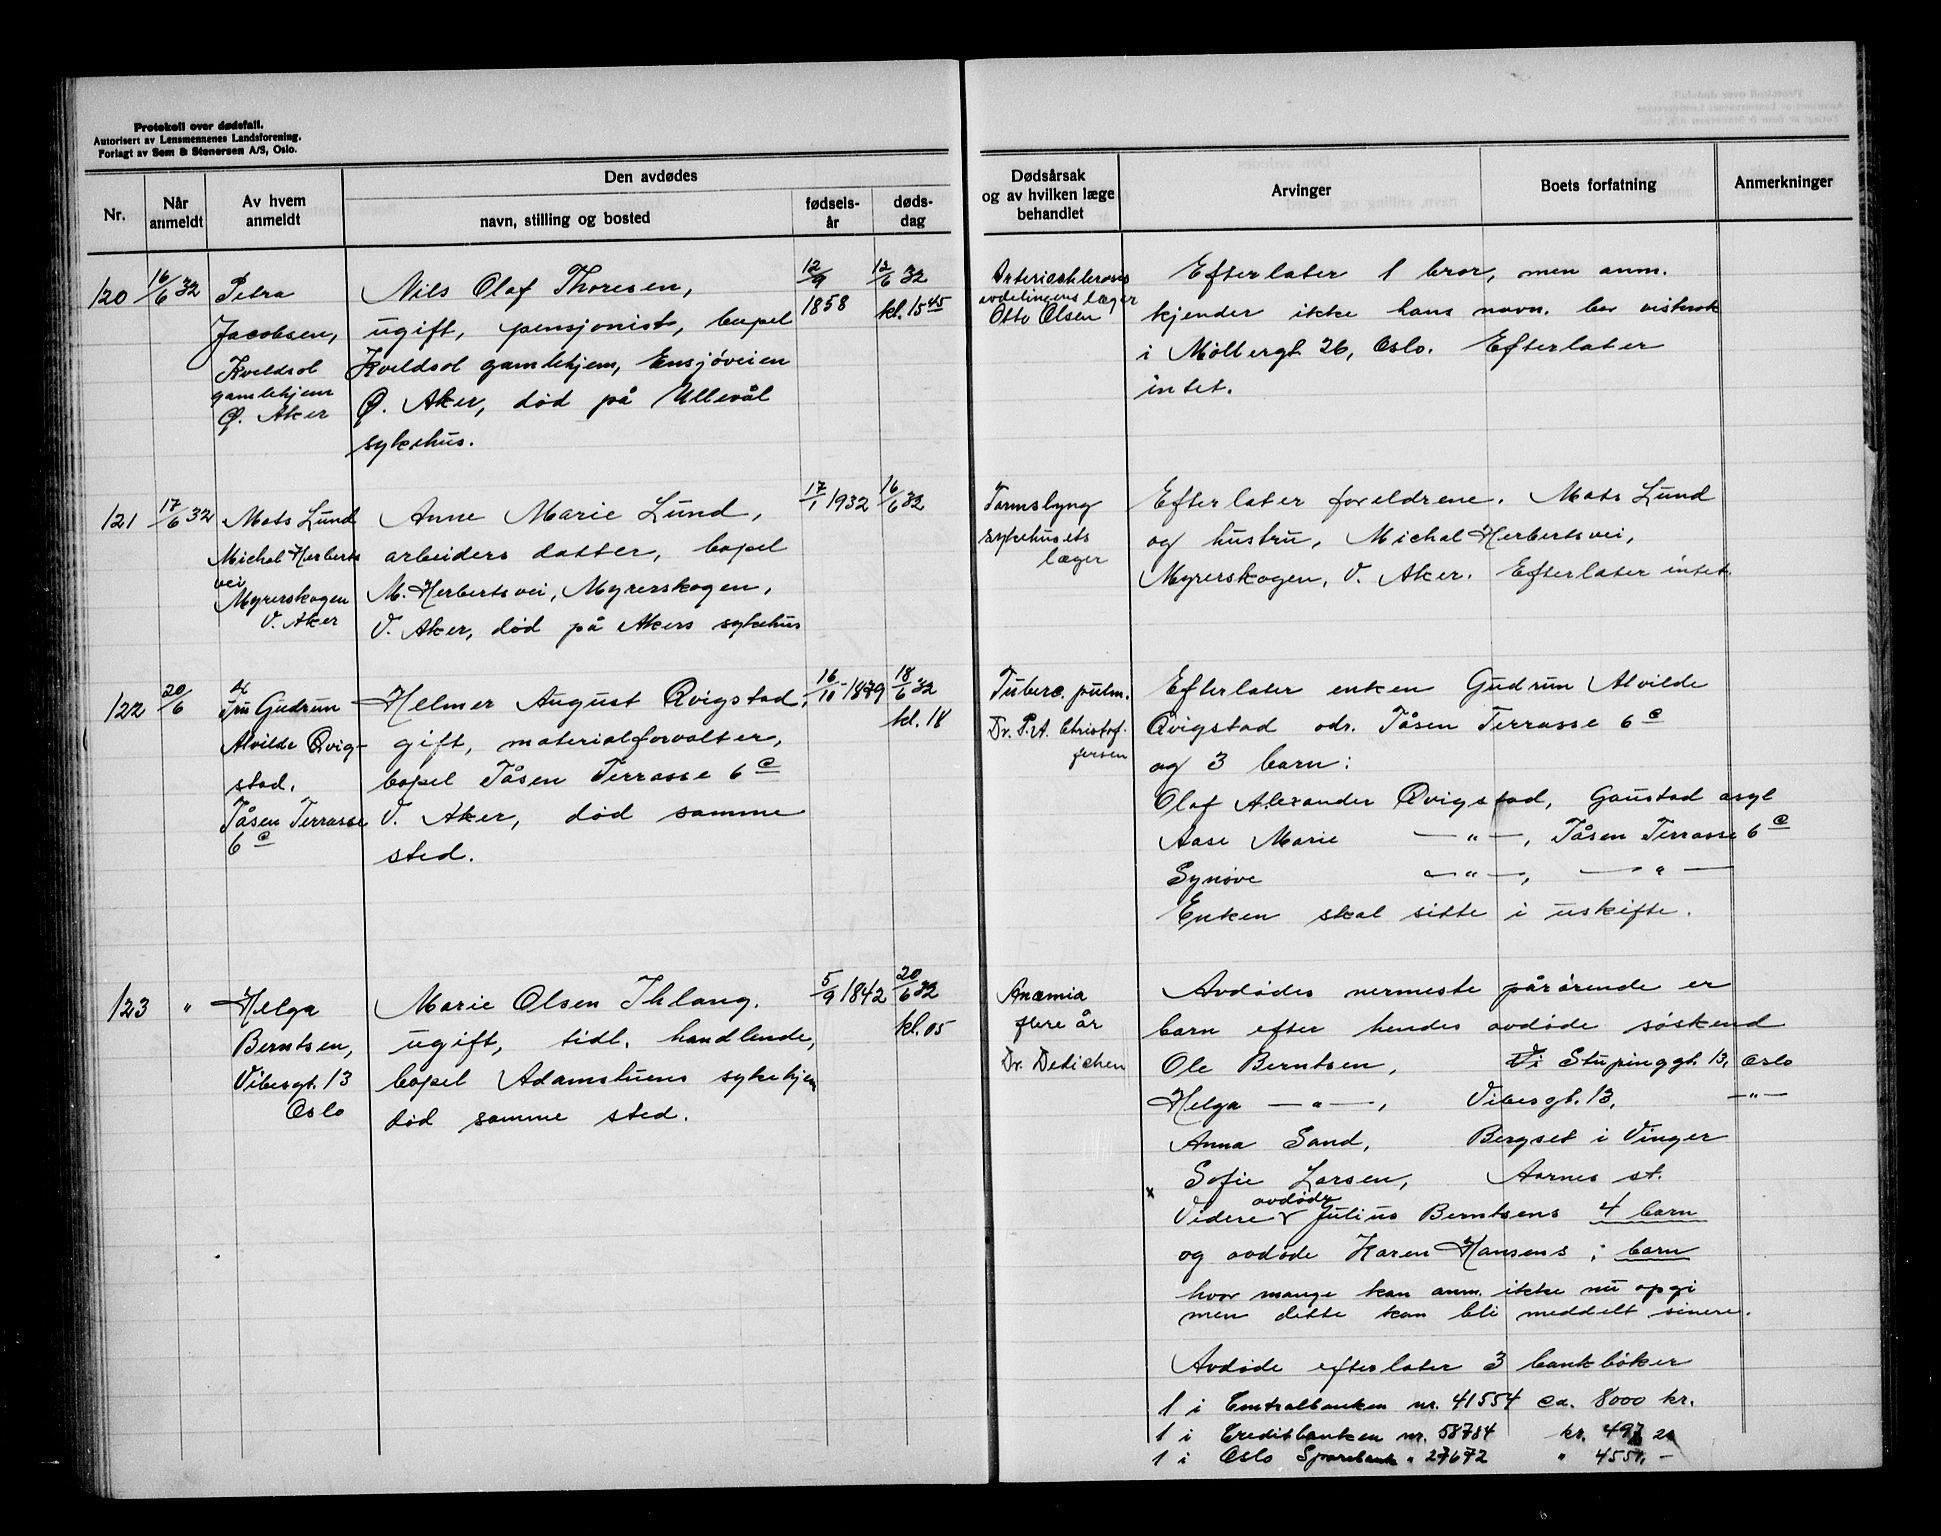 Protokoll over dødsfall.
Autorisert av Lensmennenes Landsforening.
Forlagt av Sem & Stenersen A/S, Oslo.
Nr.
Når anmeldt
Av hvem anmeldt
Den avdødes
navn, stilling og bosted
fødsels-år
døds-dag
Dødsårsak
og av hvilken læge
behandlet
Arvinger
Boets forfatning
Anmerkninger
120
16/6 32
Petra
Jacobsen,
Kveldsol
gamlehjem
Ø. Aker
Nils Olaf Thoresen,
ugift, pensjonist, bopel
Kveldsol gamlehjem, Ensjøveien
Ø. Aker, død på Ullevål
sykehus.
12/9
1858
12/6 32
kl. 15 45
avdelingens læger
Otto Olsen
Efterlater 1 bror, men anm.
kjender ikke hans navn. bor
i Møllergt 26, Oslo. Efterlater
intet.
121
17/6 32
Mats Lund
Michal Herberts
vei
Myrerskogen
V. Aker
Anne Marie Lund,
arbeiders datter, bopel
M. Herbertsvei, Myrerskogen,
V. Aker, død på Akers sykehus
17/1 1932
16/6 32
Tarmslyng
sykehusets
læger
Efterlater foreldrene. Mats Lund
og hustru, Michal Herbertsvei,
Myrerskogen, V. Aker. Efterlater intet.
122
20/6
Fru Gudrun
Alvilde Qvig-
stad.
Tåsen Terrasse
6 c
Helmer August Qvigstad,
gift, materialforvalter,
bopel Tåsen Terrasse 6 c
V. Aker, død samme
sted.
16/10-1879
18/6 32
kl. 18
Tuberc. pulm.
Dr. P.A. Christof-
fersen
Efterlater enken Gudrun Alvilde
Qvigstad adr. Tåsen Terrasse 6 c
og 3 barn:
Olaf Alexander Qvigstad, Gaustad asyl
Aase Marie — " —, Tåsen Terrasse 6 c
Synøve — " —, — " —
Enken skal sitte i uskifte.
123
"
Helga
Berntsen,
Vibesgt. 13
Oslo
Marie Olsen Ihlang.
ugift, tidl. handlende,
bopel Adamstuens sykehjem
død samme sted.
5/9 1842
20/6 32
kl. 05
Anæmia
flere år
Dr. Dedichen
Avdødes nermeste pårørende er
barn efter hendes avdøde søskend
Ole Berntsen, Stupinggt. 13, Oslo
Helga — " —, Vibesgt. 13, — " —
Anna Sand, Bergset i Vinger
Sofie Larsen, Aarnes st.
x
avdøde
Videre v Julius Berntsens 4 barn
og avdøde Karen Hansens ; barn
hvor mange kan anm. ikke nu opgi
men dette kan bli meddelt sinere.
Avdøde efterlater 3 bankbøker
1 i Centralbanken nr. 41554 ca. 8000 kr.
1 i Creditbanken nr. 58784 kr. 497
1 i Oslo Sparebank " 27672 " 4551, —